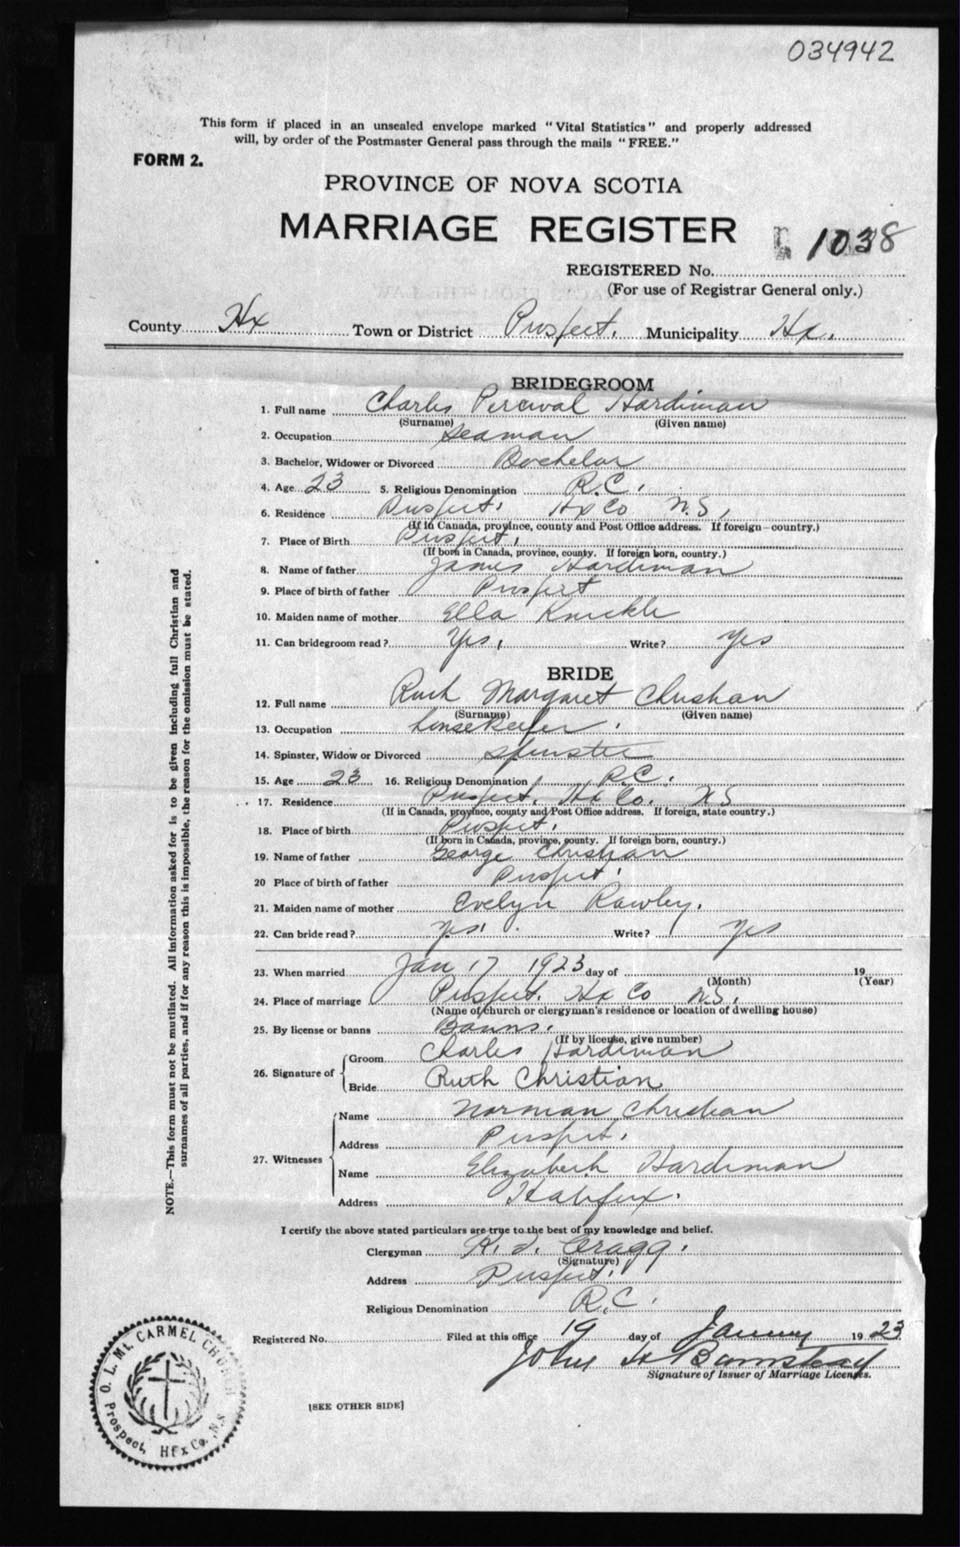 034942
This form if placed in an unsealed envelope marked "Vital Statistics" and properly addressed
will, by order of the Postmaster General pass through the mails "FREE."
FORM 2.
PROVINCE OF NOVA SCOTIA
MARRIAGE REGISTER
1038
REGISTERED No.
(For use of Registrar General only.)
County Hx Town or District Prospect. Municipality Hx.
BRIDEGROOM
1. Full name Charles Percival Hardiman
(Surname) (Given name)
2. Occupation Seaman
3. Bachelor, Widower or Divorced Bachelor
4. Age 23 5. Religious Denomination R.C.
6. Residence Prospect. Hx Co N.S.
(If in Canada, province, county and Post Office address. If foreign—country.)
7. Place of Birth Prospect.
(If born in Canada, province, county. If foreign born, country.)
8. Name of father James Hardiman
9. Place of birth of father Prospect
10. Maiden name of mother Ella Knickle
11. Can bridegroom read? Yes, Write? Yes
BRIDE
12. Full name Ruth Margaret Christian
(Surname) (Given name)
13. Occupation housekeeper.
14. Spinster, Widow or Divorced Spinster
15. Age 23 16. Religious Denomination R.C.
17. Residence Prospect, Hx Co. NS
(If in Canada, province, county and Post Office address. If foreign, state country.)
18. Place of birth Prospect.
(If born in Canada, province, county. If foreign born, country.)
19. Name of father George Christian
20 Place of birth of father Prospect.
21. Maiden name of mother Evelyn Rawley.
22. Can bride read? Yes. Write? Yes
23. When married Jan 17 1923 day of 19
(Month) (Year)
24. Place of marriage Prospect. Hx Co N.S.
(Name of church or clergyman's residence or location of dwelling house)
25. By license or banns Banns.
(If by license, give number)
26. Signature of Groom Charles Hardiman
Bride Ruth Christian
27. Witnesses Name Norman Christian
Address Prospect.
Name Elizabeth Hardiman
Address Halifax.
I certify the above stated particulars are true to the best of my knowledge and belief.
Clergyman Cragg.
(Signature)
Address Prospect.
Religious Denomination R.C.
Registered No. Filed at this office 19 day of January 1923
John
Signature of Issuer of Marriage Licenses.
[SEE OTHER SIDE]
NOTE.—This form must not be mutilated. All information asked for is to be given including full Christian and
surnames of all parties, and if for any reason this is impossible, the reason for the omission must be stated.
O. L. Mt. CARMEL CHURCH
Prospect, Hfx Co., N.S.